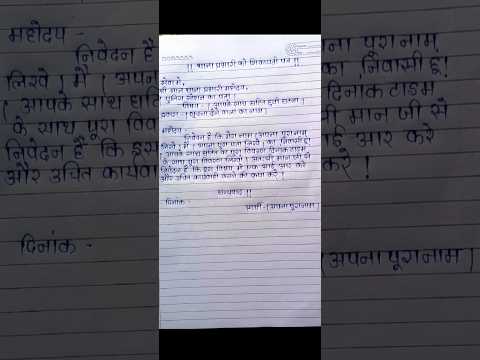 !! थाना प्रभारी को शिकायती पत्र !!
सेवा में,
श्री मान थाना प्रभारी महोदय,
( पुलिस स्टेशन का पता )
विषय - ( आपके साथ घटित हुयी घटना )
( सूचना देने वाला का नाम )
महोदय -
निवेदन है कि मेरा नाम ( अपना पूरा नाम
लिखे ) मैं ( अपना पूरा पता लिखे ) का निवासी हूं।
( आपके साथ घटित का पूरा विवरण दिनांक टाइम
के साथ पूरा विवरण लिखे ) अतः श्री मान जी से
निवेदन है कि इस विषय में एफ आई आर करे
और उचित कार्यवाही करने की कृपा करे ।
धन्यवाद !!
दिनांक - प्रार्थी - ( अपना पूरा नाम )